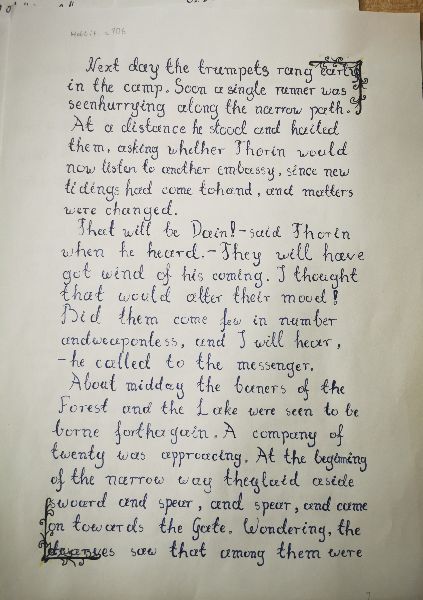 Next day the trumpets rang early
in the camp. Soon a single runner was
seenhurrying along the narrow path.
At a distance he stood and hailed
them, asking whether Thorin would
now listen to another embassy, since new
tidings had come tohand, and matters
were changed.
That will be Dain! - said Thorin
when he heard. - They will have
got wind of his coming. I thought
that would alter their mood!
Bid them come few in number
andweaponless, and I will hear,
- he called to the messenger.
About midday the baners of the
Forest and the Lake were seen to be
borne forthagain. A company of
twenty was approacing. At the beginning
of the narrow way theylaid aside
sword and spear, and spear, and came
on towards the Gate. Wondering, the
dwarves saw that among them were